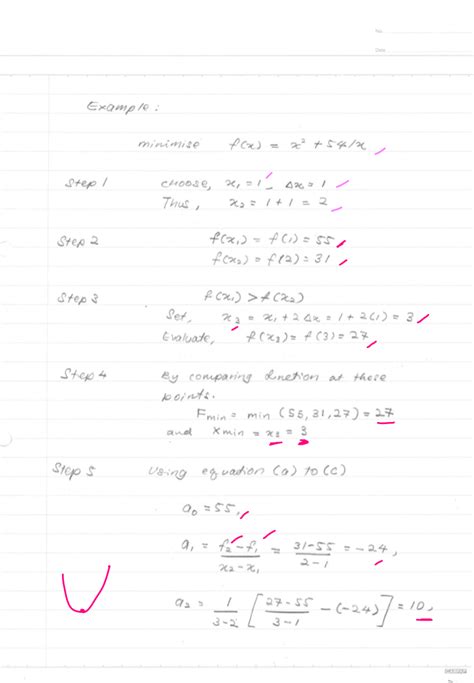 No.
Date
Example :
minimise f(x) = x² + 54/x
Step 1 choose, x₁ = 1 Δx = 1
Thus, x₂ = 1 + 1 = 2
Step 2 f(x₁) = f(1) = 55
f(x₂) = f(2) = 31
Step 3 f(x₁) > f(x₂)
Set, x₃ = x₁ + 2Δx = 1 + 2(1) = 3
Evaluate, f(x₃) = f(3) = 27
Step 4 By comparing function at these
points.
Fmin = min (55, 31, 27) = 27
and Xmin = x₃ = 3
Step 5 Using equation (a) to (c)
a₀ = 55,
a₁ = f₂ - f₁ / x₂ - x₁ = 31-55 / 2-1 = -24,
a₂ = 1 / 3-2 [ 27-55 / 3-1 - (-24) ] = 10,